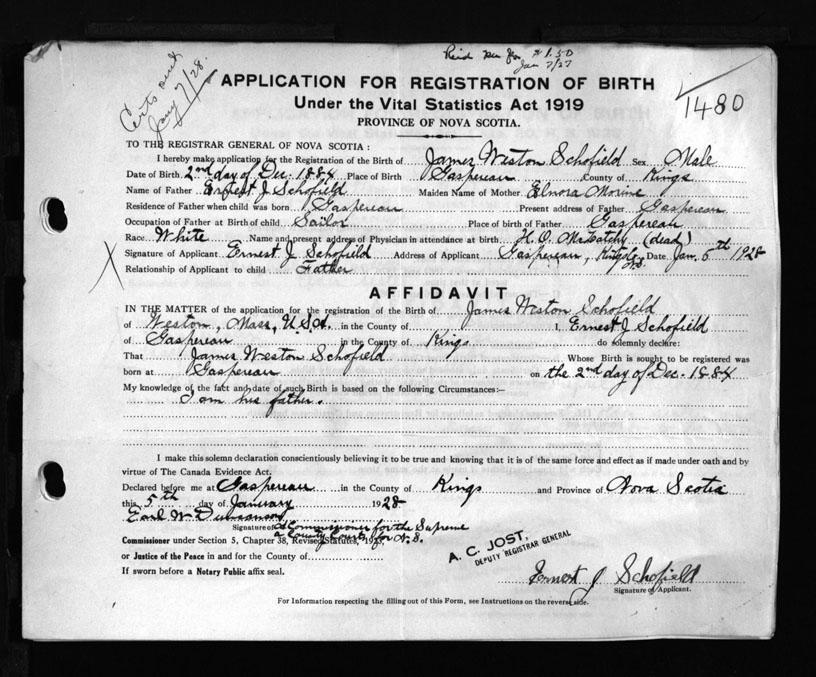 Jan 7/27
Certs sent
Jany 7/28.
1480
APPLICATION FOR REGISTRATION OF BIRTH
Under the Vital Statistics Act 1919
PROVINCE OF NOVA SCOTIA.
TO THE REGISTRAR GENERAL OF NOVA SCOTIA:
I hereby make application for the Registration of the Birth of James Weston Schofield Sex Male
Date of Birth 2nd day of Dec. 1884 Place of Birth Gaspereau County of Kings
Name of Father Ernest J Schofield Maiden Name of Mother Elnora Morine
Residence of Father when child was born Gaspereau Present address of Father Gaspereau
Occupation of Father at Birth of child Sailor Place of birth of Father Gaspereau
Race White Name and present address of Physician in attendance at birth H. O. McLatchy (dead)
Signature of Applicant Ernest J Schofield Address of Applicant Gaspereau, Kings Co, N.S. Date Jan. 5th 1928
Relationship of Applicant to child Father
AFFIDAVIT
IN THE MATTER of the application for the registration of the Birth of James Weston Schofield
of Weston, Mass, U.S.A. in the County of I, Ernest J Schofield
of Gaspereau in the County of Kings do solemnly declare:
That James Weston Schofield Whose Birth is sought to be registered was
born at Gaspereau on the 2nd day of Dec. 1884
My knowledge of the fact and date of such Birth is based on the following Circumstances:—
I am his father.
I make this solemn declaration conscientiously believing it to be true and knowing that it is of the same force and effect as if made under oath and by
virtue of The Canada Evidence Act.
Declared before me at Gaspereau in the County of Kings and Province of Nova Scotia
this 5th day of January 1928
Earl W Duncanson
Signature of A Commissioner for the Supreme
& County Courts for N.S.
Commissioner under Section 5, Chapter 38, Revised Statutes, 1923,
or Justice of the Peace in and for the County of
If sworn before a Notary Public affix seal.
A. C. JOST,
DEPUTY REGISTRAR GENERAL
Ernest J Schofield
Signature of Applicant.
For Information respecting the filling out of this Form, see Instructions on the reverse side.